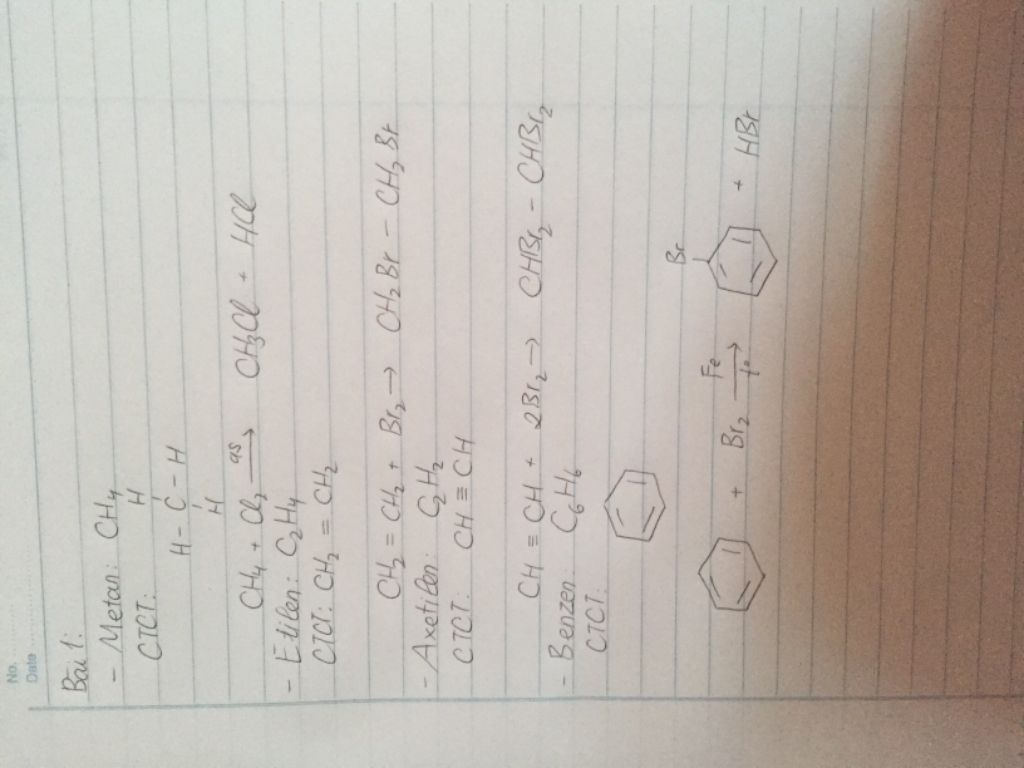 No.
Date
Bài 1:
- Metan: CH4
CTCT: H
H - C - H
H
CH4 + Cl2 as → CH3Cl + HCl
- Etilen: C2H4
CTCT: CH2 = CH2
CH2 = CH2 + Br2 → CH2Br - CH2Br
- Axetilen: C2H2
CTCT: CH ≡ CH
CH ≡ CH + 2Br2 → CHBr2 - CHBr2
- Benzen: C6H6
CTCT:
Br
+ Br2 Fe → to + HBr